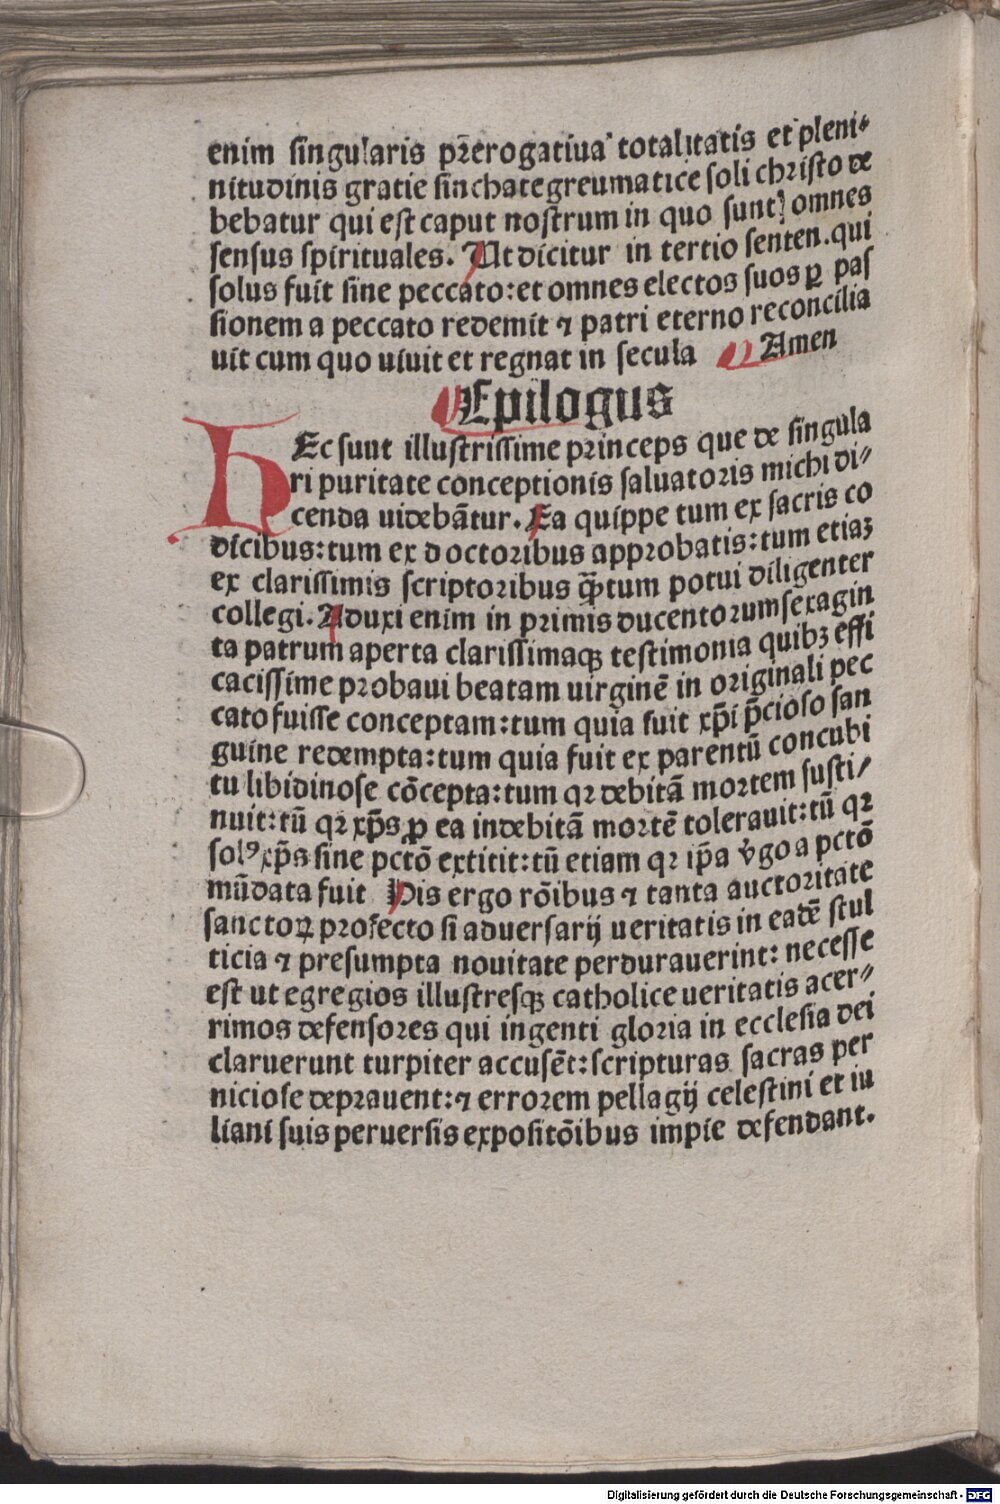 enim singularis pr̄erogatiua totalitatis et pleni⸗
nitudinis gratie sinchategreumatice soli christo de
bebatur qui est caput nostrum in quo sunt omnes
sensus spirituales. Ut dicitur in tertio senten.qui
solus fuit sine peccato:et omnes electos suos ꝑ pas
sionem a peccato redemit ⁊ patri eterno reconcilia
uit cum quo uiuit et regnat in secula Amen
Epilogus
HEc sunt illustrissime princeps que de singula
ri puritate conceptionis saluatoris michi di⸗
cenda uidebātur. Ea quippe tum ex sacris co
dicibus:tum ex doctoribus approbatis:tum etiaꝫ
ex clarissimis scriptoribus q̄ꝫtum potui diligenter
collegi. Aduxi enim in primis ducentorum sexagin
ta patrum aperta clarissimaqꝫ testimonia quibꝫ effi
cacissime probaui beatam uirginē in originali pec
cato fuisse conceptam:tum quia fuit xp̄i p̄cioso san
guine redempta:tum quia fuit ex parentū concubi
tu libidinose cōcepta:tum qꝛ debitā mortem susti⸗
nuit:tū qꝛ xp̄s ꝓ ea indebitā mortē tolerauit:tū qꝛ
solꝰ xp̄s sine pctō extitit:tū etiam qꝛ ip̄a v̄go a pctō
mūdata fuit His ergo rōibus ⁊ tanta auctoritate
sanctoꝝ profecto si aduersarij ueritatis in eadē stul
ticia ⁊ presumpta nouitate perdurauerint: necesse
est ut egregios illustresqꝫ catholice ueritatis acer⸗
rimos defensores qui ingenti gloria in ecclesia dei
claruerunt turpiter accusēt:scripturas sacras per
niciose deprauent:⁊ errorem pellagij celestini et iu
liani suis peruersis expositōibus impie defendant.
Digitalisierung gefördert durch die Deutsche Forschungsgemeinschaft - DFG